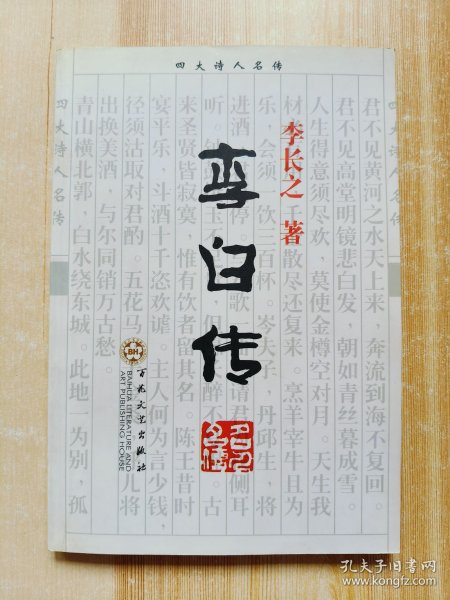 四大诗人名传
四大诗人名传
四大诗人名传
李长之 著
李白传
君不见黄河之水天上来，奔流到海不复回。
君不见高堂明镜悲白发，朝如青丝暮成雪。
人生得意须尽欢，莫使金樽空对月。天生我
材 散尽还复来，烹羊宰牛且为
乐，会须一饮三百杯。岑夫子，丹邱生，将
进酒 停。 歌 请君 侧耳
听。 玉不 但 醉不 。古
来圣贤皆寂寞，惟有饮者留其名。陈王昔时
宴平乐，斗酒十千恣欢谑。主人何为言少钱，
径须沽取对君酌。五花马 儿将
出换美酒，与尔同销万古愁。
青山横北郭，白水绕东城。此地一为别，孤
BH
百花文艺出版社
BAIHUA LITERATURE AND
ART PUBLISHING HOUSE
孔夫子旧书网
www.kongfz.com